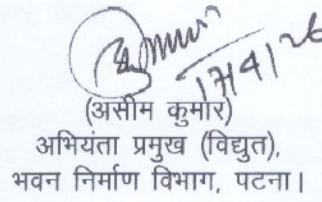 17/4/26
(असीम कुमार)
अभियंता प्रमुख (विद्युत),
भवन निर्माण विभाग, पटना।